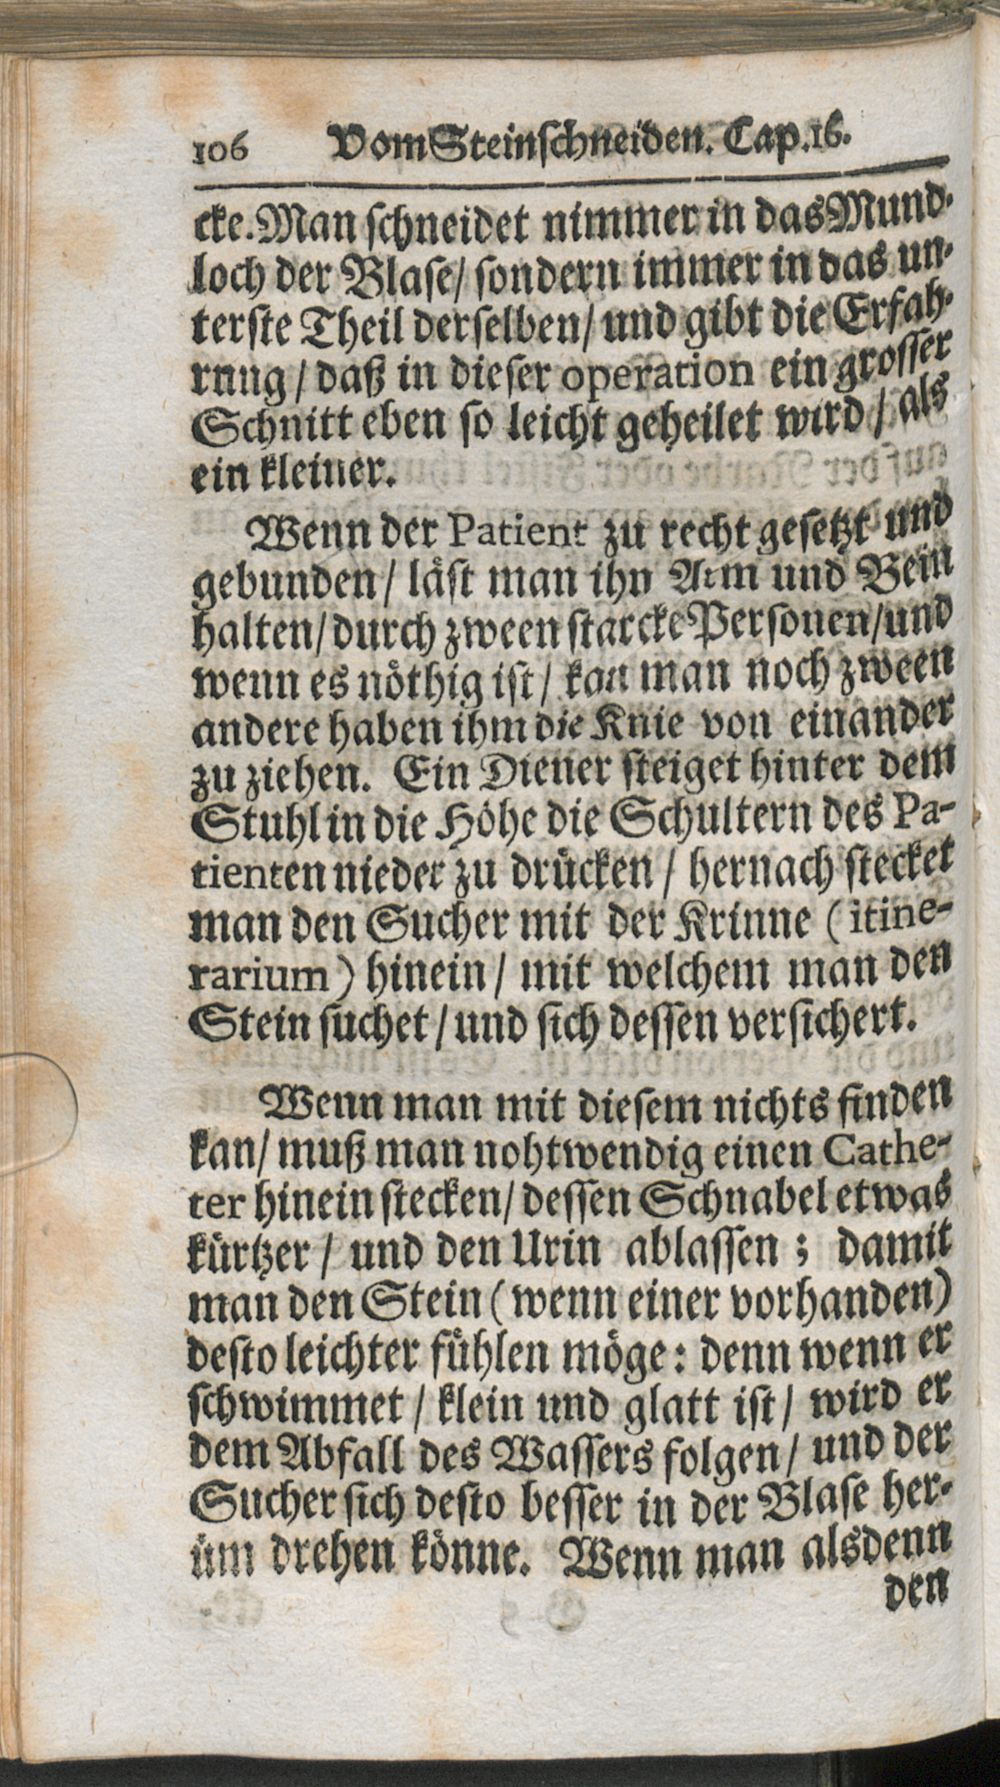 106 Vom Steinschneiden. Cap. 16.
cke. Man schneidet nimmer in das Mund-
loch der Blase/ sondern immer in das un-
terste Theil derselben/ und gibt die Erfah-
rnng/ daß in dieser operation ein grosser
Schnitt eben so leicht geheilet wird/ als
ein kleiner.
Wenn der Patient zu recht gesetzt und
gebunden/ läst man ihn Arm und Bein
halten/ durch zween starcke Personen/ und
wenn es nöthig ist/ kan man noch zween
andere haben ihm die Knie von einander
zu ziehen. Ein Diener steiget hinter dem
Stuhl in die Höhe die Schultern des Pa-
tienten nieder zu drücken/ hernach stecket
man den Sucher mit der Krinne (itine-
rarium) hinein/ mit welchem man den
Stein suchet/ und sich dessen versichert.
Wenn man mit diesem nichts finden
kan/ muß man nohtwendig einen Cathe-
ter hinein stecken/ dessen Schnabel etwas
kürtzer/ und den Urin ablassen; damit
man den Stein (wenn einer vorhanden)
desto leichter fühlen möge: denn wenn er
schwimmet/ klein und glatt ist/ wird er
dem Abfall des Wassers folgen/ und der
Sucher sich desto besser in der Blase her-
üm drehen könne. Wenn man alsdenn
den